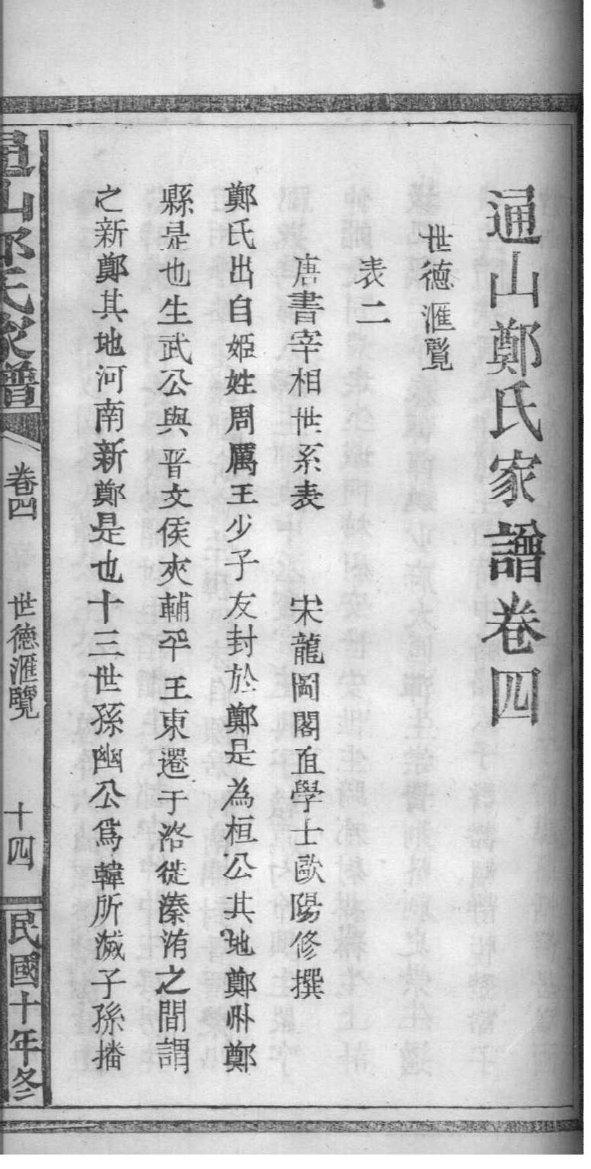 通山鄭氏家譜卷四
世德滙覽
表二
唐書宰相世系表 宋龍啚閣直學士歐陽修撰
鄭氏出自姬姓周厲王少子友封於鄭是為桓公其地鄭州鄭
縣是也生武公與晋文侯夾輔平王東遷于洛徙溱洧之間謂
之新鄭其地河南新鄭是也十三世孫幽公爲韓所滅子孫播
通山鄭氏家譜 卷四 世德滙覽 十四 民國十年冬